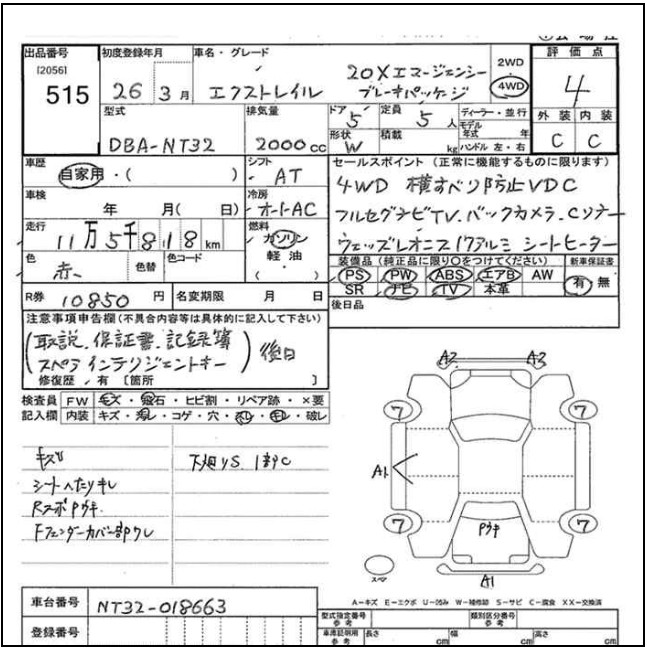 出品番号 初度登録年月 車名・グレード 2WD 評価点
[2056]
515 26 3月 エクストレイル 20Xエマージェンシー
ブレーキパッケージ 4WD 4
型式 排気量 ドア 定員 ディーラー・並行 外装 内装
DBA-NT32 2000cc 5 5人 モデル年式 年
形状 W 積載 kg ハンドル 左・右 C C
車歴 シフト セールスポイント (正常に機能するものに限ります)
自家用・( ) AT 4WD 横すべり防止VDC
車検 冷房
年 月( 日) オートAC フルセグナビTV.バックカメラ.Cソナー
走行 燃料
11万5千818km ガソリン ウェッズレオニス17アルミ シートヒーター
色 色替 色コード 軽油 装備品(純正品に限り○をつけてください) 新車保証書
赤 ( ) PS PW ABS エアB AW 有 無
SR ナビ TV 本革
R券 10850円 名変期限 月 日 後日品
注意事項申告欄(不具合内容等は具体的に記入して下さい)
(取説.保証書.記録簿
スペアインテリジェントキー) 後日
修復歴 有 [箇所 ]
検査員 FW キズ・飛石・ヒビ割・リペア跡・×要
記入欄 内装 キズ・汚レ・コゲ・穴・スレ・キレ・破レ
A2 A2
7 7
キズ 下廻りS 1部C
シートへたりキレ A1
RスポPウキ
Fフェンダーカバー部ワレ 7 7
Pウキ
スペア A1
A－キズ E－エクボ U－凹み W－補修跡 S－サビ C－腐食 XX－交換済
車台番号 NT32-018663
型式指定番号 参考 類別区分番号 参考
登録番号 車庫証明用 参考 長さ cm 幅 cm 高さ cm